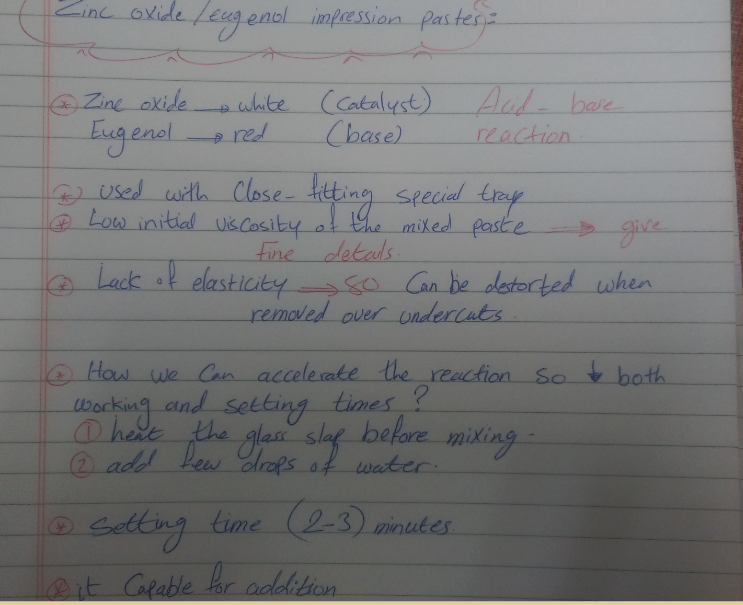 Zinc oxide / eugenol impression pastes:-
* Zinc oxide → white (catalyst) Acid - base
Eugenol → red (base) reaction.
* used with Close-fitting special tray
* Low initial viscosity of the mixed paste ⇒ give
fine details.
* Lack of elasticity → so Can be destorted when
removed over undercuts.
* How we Can accelerate the reaction so ↓ both
working and setting times?
① heat the glass slap before mixing-
② add few drops of water.
* setting time (2-3) minutes
* it Capable for addition